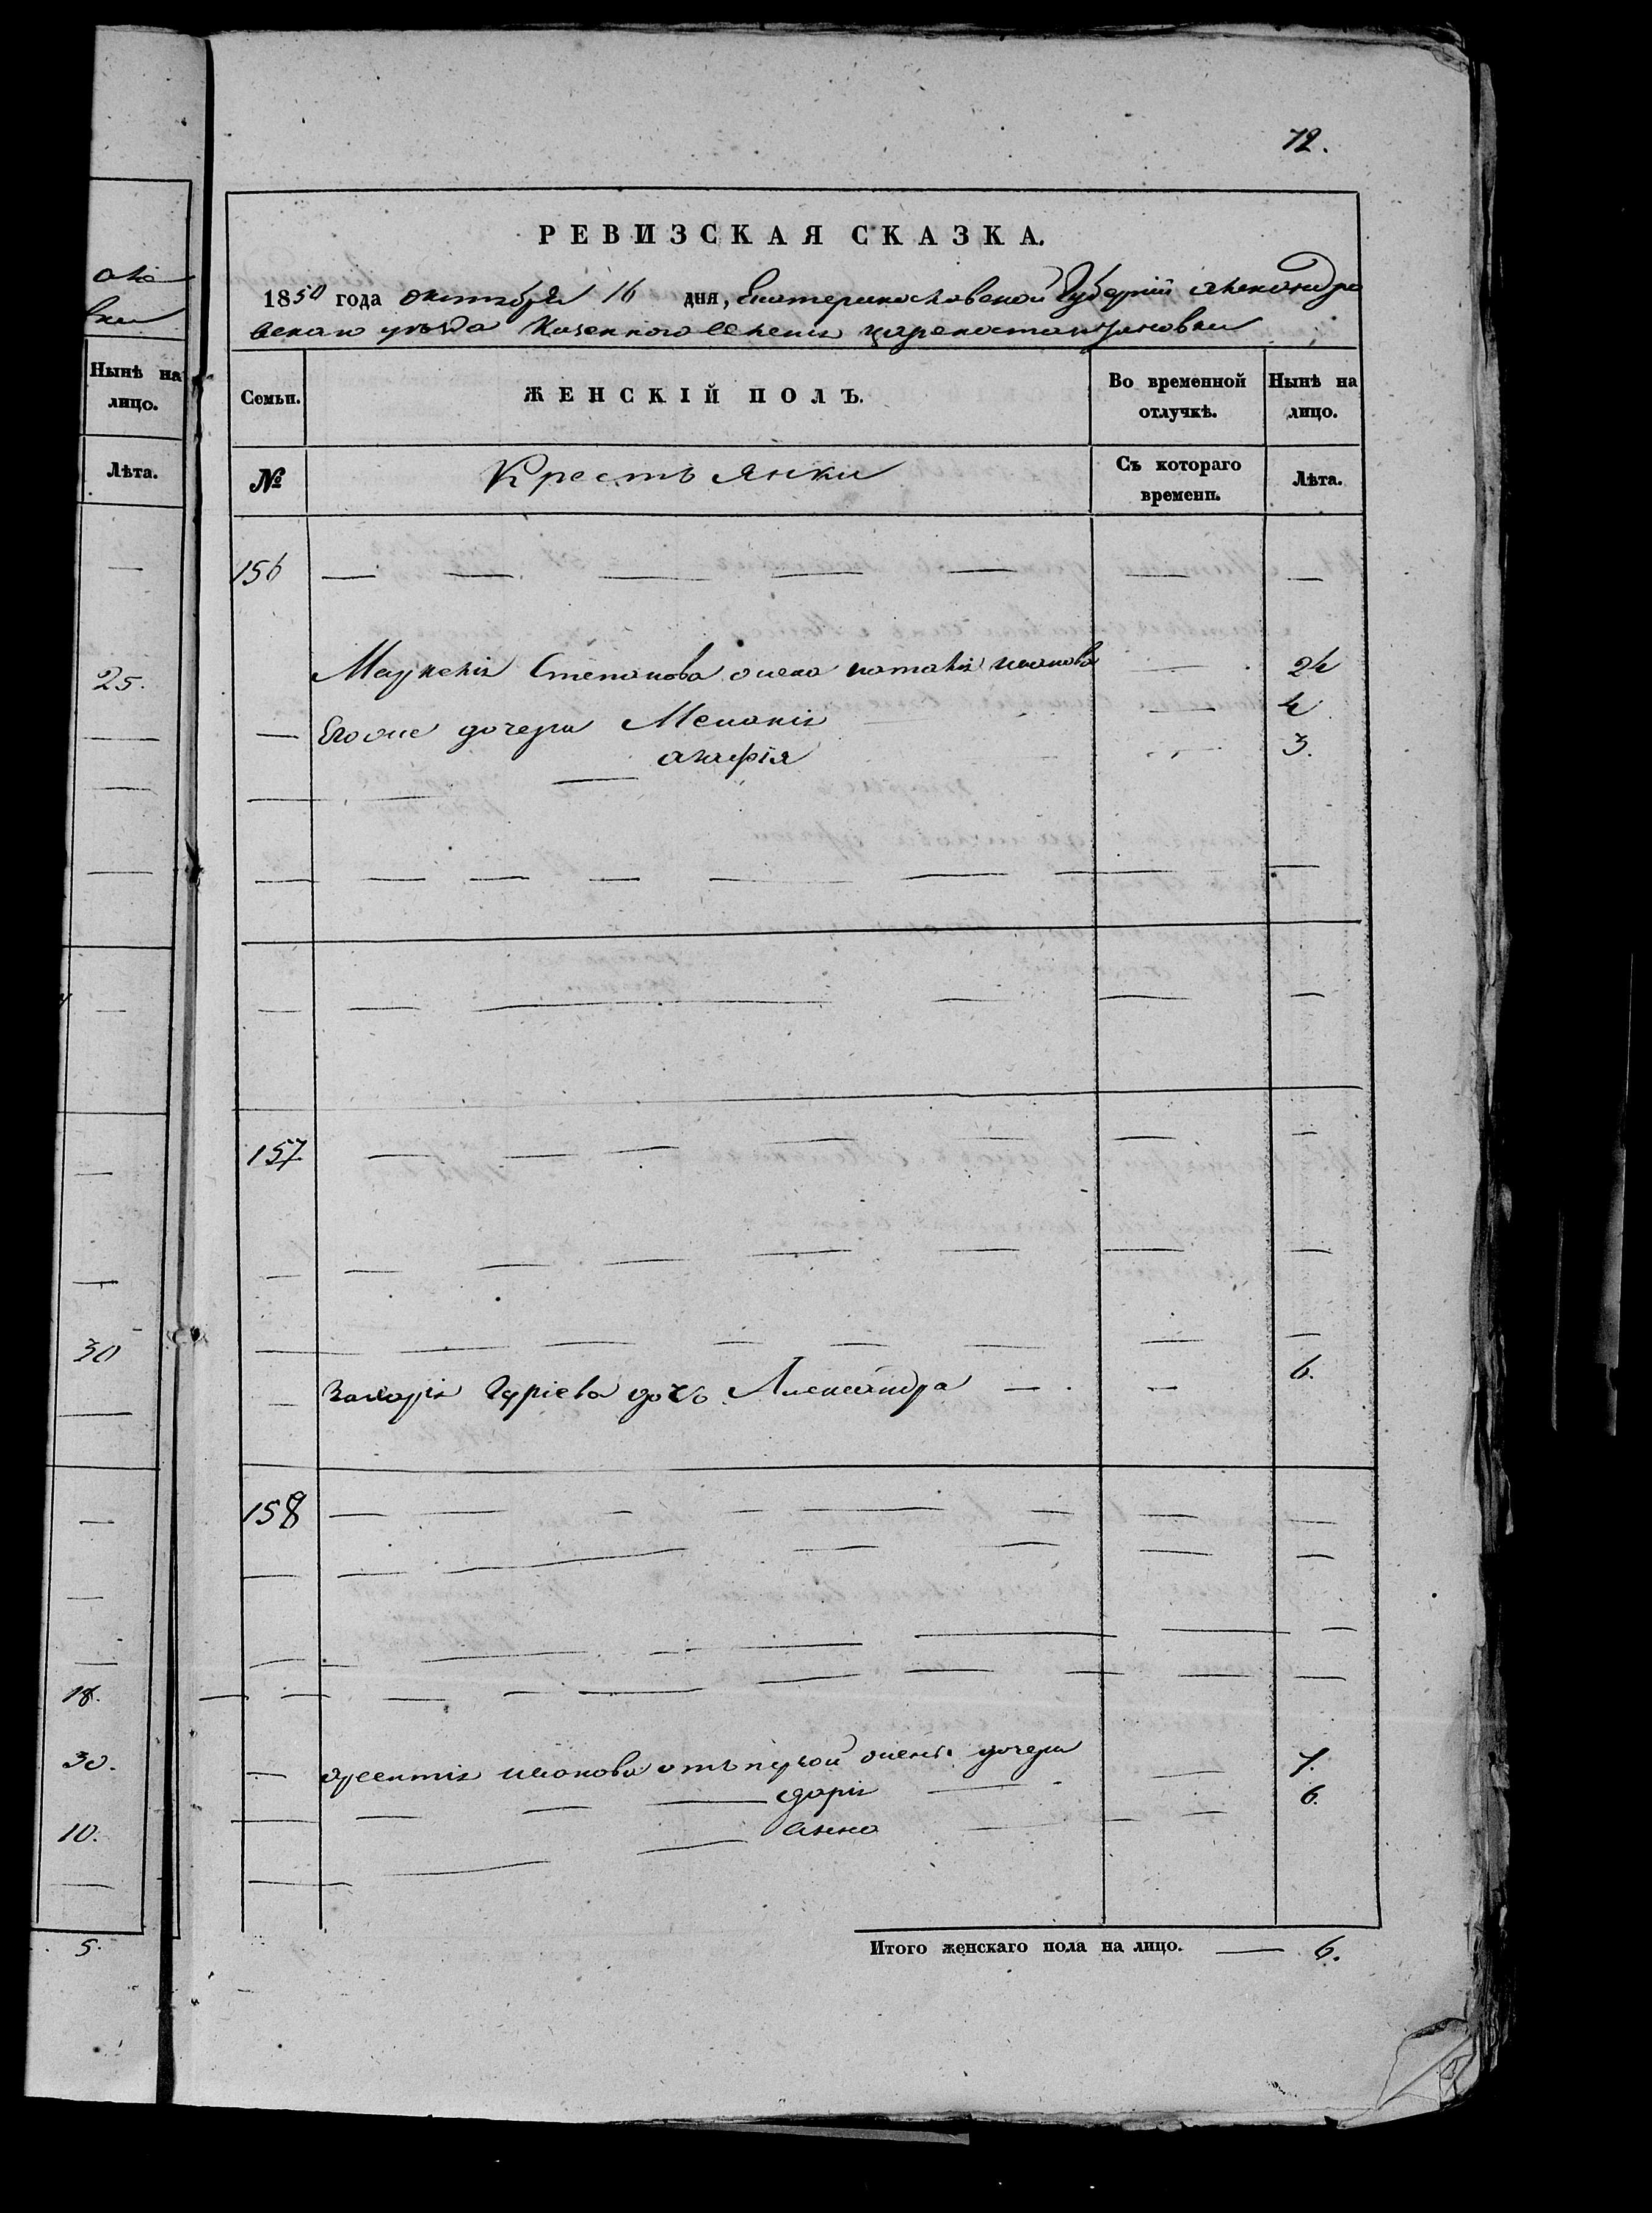 аго
вки
Нынѣ на
лицо.
Лѣта.
25.
30
18.
30.
10.
5.
72.
РЕВИЗСКАЯ СКАЗКА.
1850 года октября 16 дня, Екатеринославской Губернии Александро
вскаго уѣзда Казеннаго селения Цареконстантиновки
Семьи. ЖЕНСКІЙ ПОЛЪ. Во временной отлучкѣ. Нынѣ на лицо.
№ Крестьянки Съ котораго времени. Лѣта.
156
Степанова жена Наталія Иванова 24
Егоже дочери Меланія 4
Агафія 3.
157
Захарія Гуріева дочь Александра 6.
158
Иванова отъ первой жены дочери
Дарія 7.
Анна 6.
Итого женскаго пола на лицо. 6.